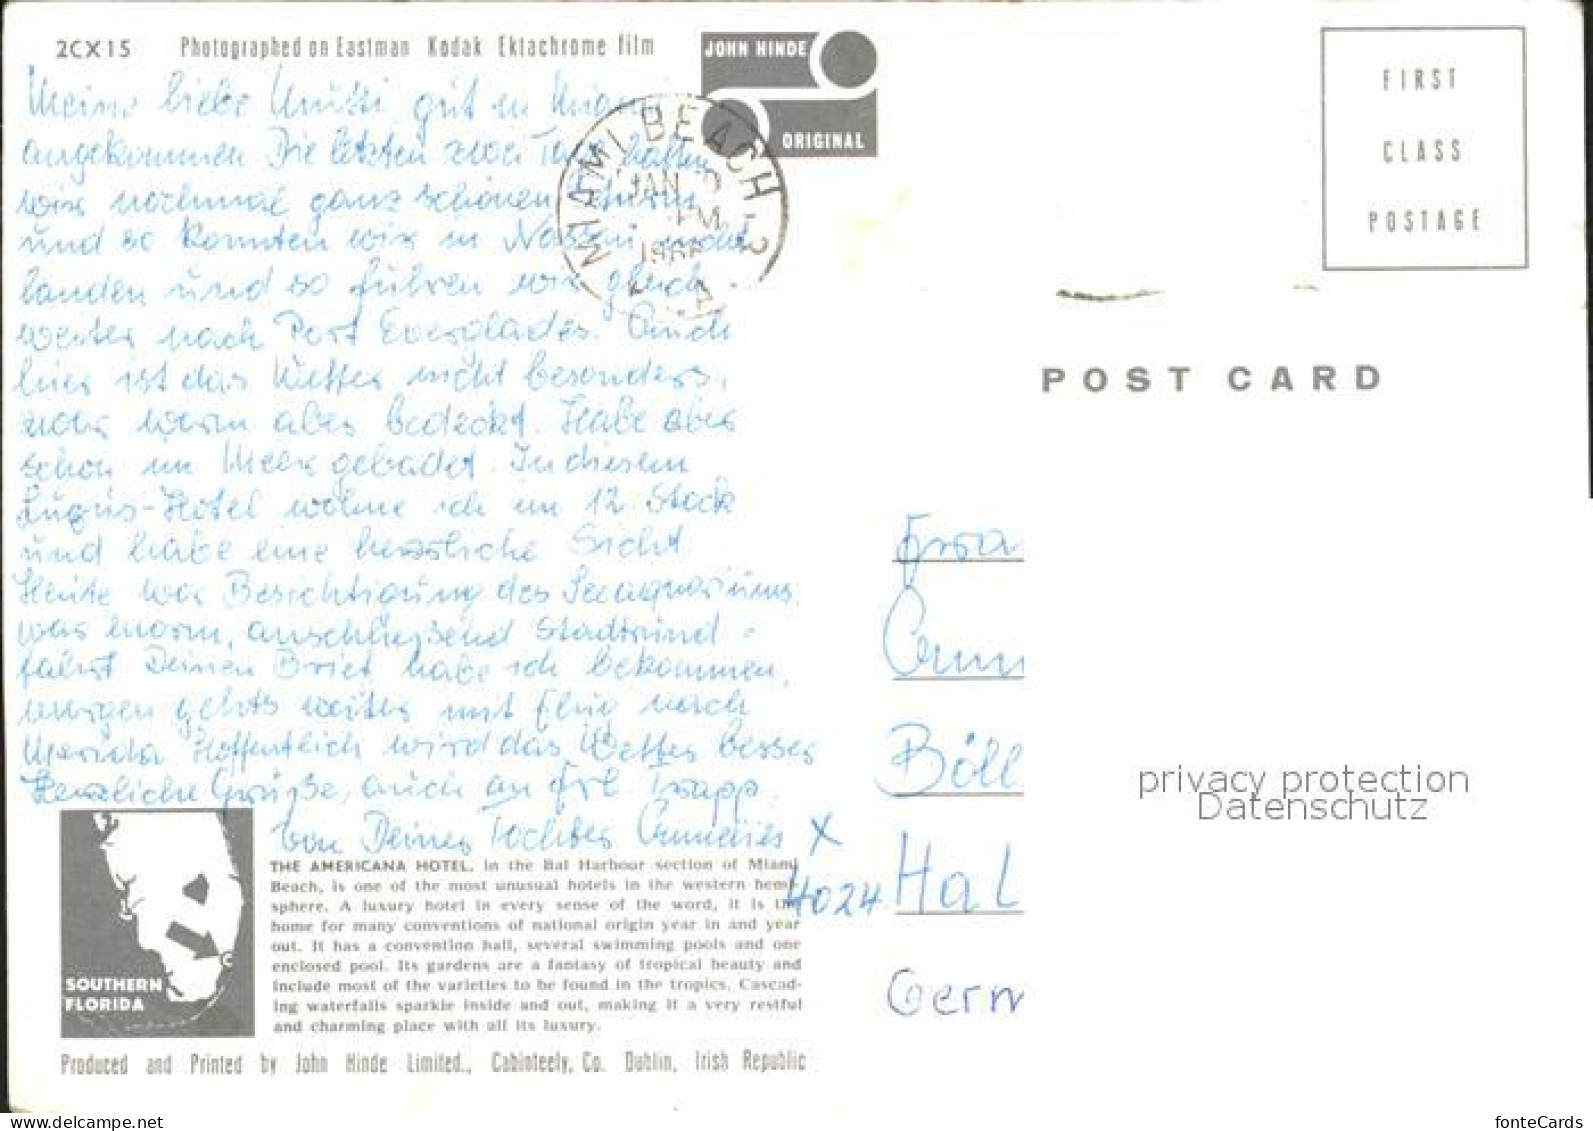 2CX15 Photographed on Eastman Kodak Ektachrome film
JOHN HINDE
ORIGINAL
FIRST
CLASS
POSTAGE
MIAMI BEACH
JAN
PM
Meine liebe Mutti gut in Miami
angekommen Die letzten zwei Tage hatten
wir nochmal ganz schönen Sturm
und so konnten wir in Nassau nicht
landen und so fuhren wir gleich
weiter nach Port Everglades. Auch
hier ist das Wetter nicht besonders,
zwar warm aber bedeckt. Habe aber
schon im Meer gebadet. In diesem
Luxus-Hotel wohne ich im 12. Stock
und habe eine herrliche Sicht
Heute war Besichtigung des Seeaquariums,
was enorm, anschließend Stadtrund-
fahrt Deinen Brief habe ich bekommen,
morgen gehts weiter mit Flug nach
Merida Hoffentlich wird das Wetter besser
Herzliche Grüße, auch an Frl. Trapp
von Deiner Tochter Annelies X
POST CARD
Frau
Ann
Böll
4024 Hal
Germ
privacy protection
Datenschutz
SOUTHERN
FLORIDA
THE AMERICANA HOTEL, in the Bal Harbour section of Miami
Beach, is one of the most unusual hotels in the western hemi-
sphere. A luxury hotel in every sense of the word, it is the
home for many conventions of national origin year in and year
out. It has a convention hall, several swimming pools and one
enclosed pool. Its gardens are a fantasy of tropical beauty and
include most of the varieties to be found in the tropics. Cascad-
ing waterfalls sparkle inside and out, making it a very restful
and charming place with all its luxury.
Produced and Printed by John Hinde Limited., Cabinteely, Co. Dublin, Irish Republic
www.delcampe.net
fonteCards